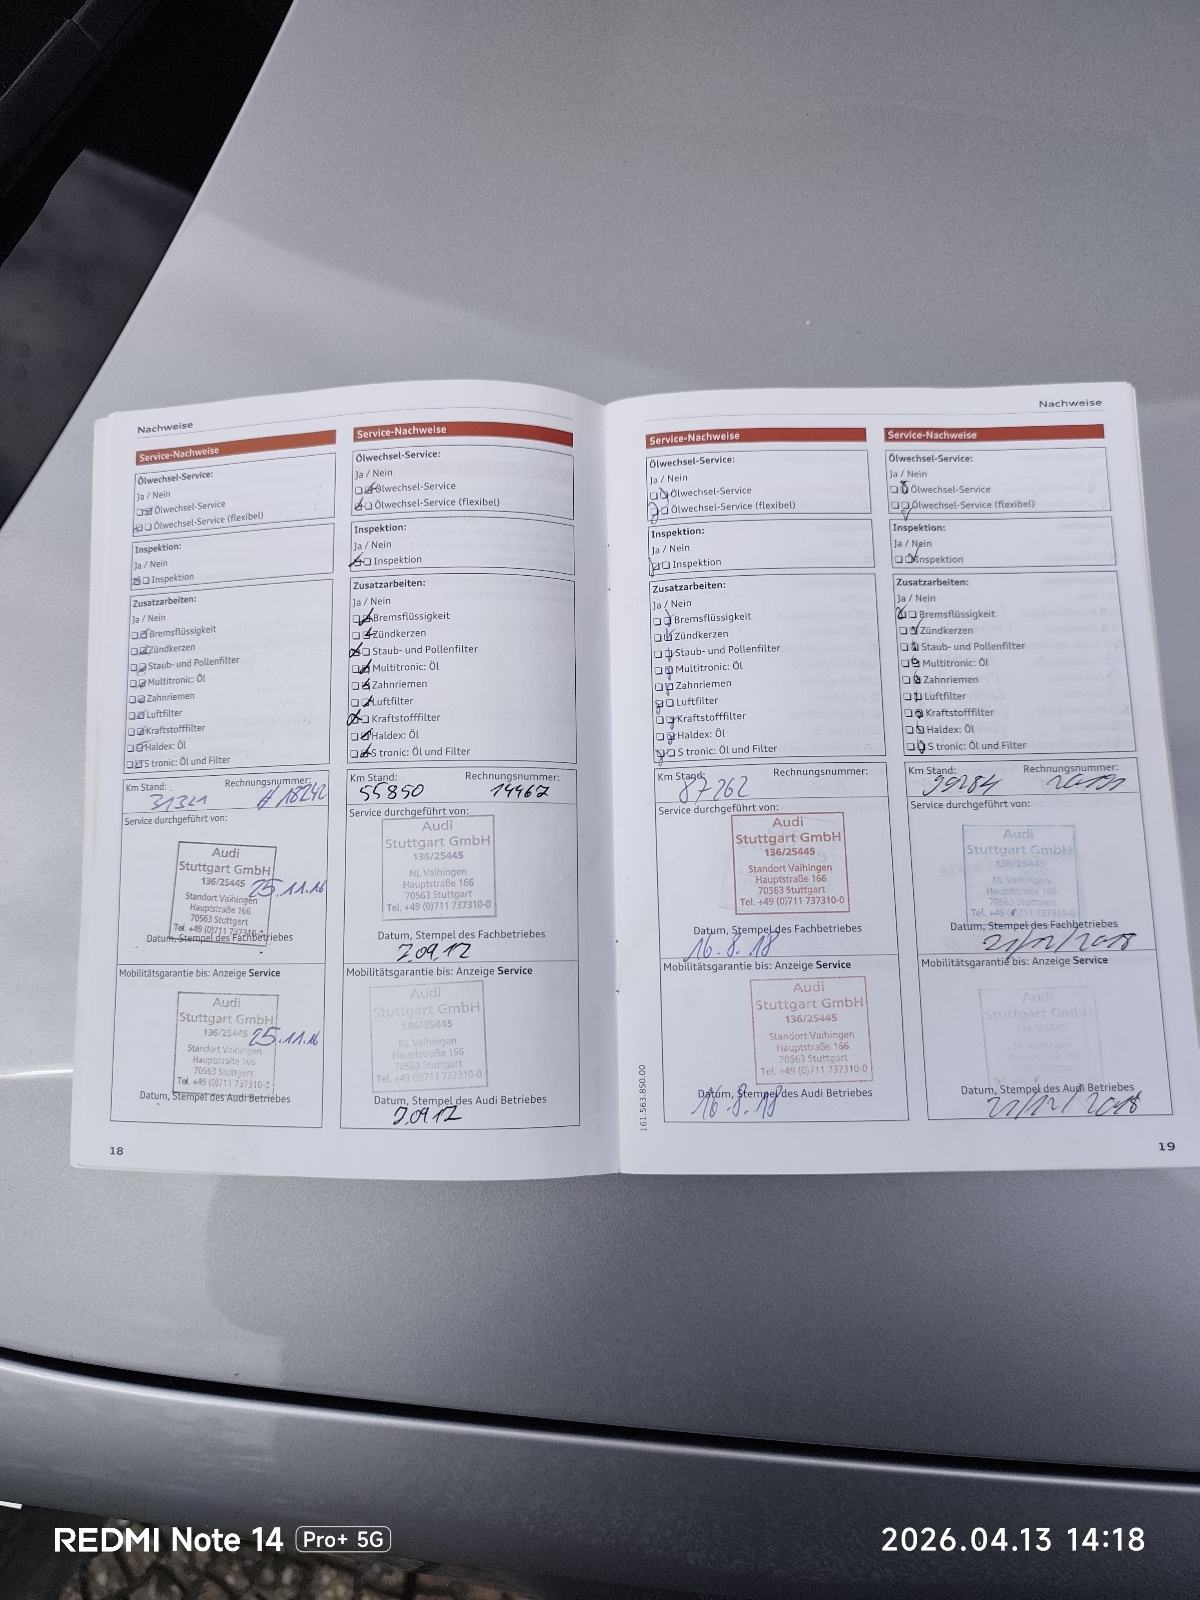 Nachweise
Service-Nachweise
Ölwechsel-Service:
Ja / Nein
Ölwechsel-Service
Ölwechsel-Service (flexibel)
Inspektion:
Ja / Nein
Inspektion
Zusatzarbeiten:
Ja / Nein
Bremsflüssigkeit
Zündkerzen
Staub- und Pollenfilter
Multitronic: Öl
Zahnriemen
Luftfilter
Kraftstofffilter
Haldex: Öl
S tronic: Öl und Filter
Km Stand: Rechnungsnummer:
31321 # 18242
Service durchgeführt von:
Audi
Stuttgart GmbH
136/25445
25.11.16
Standort Vaihingen
Hauptstraße 166
70563 Stuttgart
Tel. +49 (0)711 737310-0
Datum, Stempel des Fachbetriebes
Mobilitätsgarantie bis: Anzeige Service
Audi
Stuttgart GmbH
136/25445
25.11.16
Standort Vaihingen
Hauptstraße 166
70563 Stuttgart
Tel. +49 (0)711 737310-0
Datum, Stempel des Audi Betriebes
18
Service-Nachweise
Ölwechsel-Service:
Ja / Nein
Ölwechsel-Service
Ölwechsel-Service (flexibel)
Inspektion:
Ja / Nein
Inspektion
Zusatzarbeiten:
Ja / Nein
Bremsflüssigkeit
Zündkerzen
Staub- und Pollenfilter
Multitronic: Öl
Zahnriemen
Luftfilter
Kraftstofffilter
Haldex: Öl
S tronic: Öl und Filter
Km Stand: Rechnungsnummer:
55850 14467
Service durchgeführt von:
Audi
Stuttgart GmbH
136/25445
NL Vaihingen
Hauptstraße 166
70563 Stuttgart
Tel. +49 (0)711 737310-0
Datum, Stempel des Fachbetriebes
7.09.17
Mobilitätsgarantie bis: Anzeige Service
Audi
Stuttgart GmbH
136/25445
NL Vaihingen
Hauptstraße 166
70563 Stuttgart
Tel. +49 (0)711 737310-0
Datum, Stempel des Audi Betriebes
7.09.17
Nachweise
Service-Nachweise
Ölwechsel-Service:
Ja / Nein
Ölwechsel-Service
Ölwechsel-Service (flexibel)
Inspektion:
Ja / Nein
Inspektion
Zusatzarbeiten:
Ja / Nein
Bremsflüssigkeit
Zündkerzen
Staub- und Pollenfilter
Multitronic: Öl
Zahnriemen
Luftfilter
Kraftstofffilter
Haldex: Öl
S tronic: Öl und Filter
Km Stand: Rechnungsnummer:
87262
Service durchgeführt von:
Audi
Stuttgart GmbH
136/25445
Standort Vaihingen
Hauptstraße 166
70563 Stuttgart
Tel. +49 (0)711 737310-0
Datum, Stempel des Fachbetriebes
16.8.18
Mobilitätsgarantie bis: Anzeige Service
Audi
Stuttgart GmbH
136/25445
Standort Vaihingen
Hauptstraße 166
70563 Stuttgart
Tel. +49 (0)711 737310-0
Datum, Stempel des Audi Betriebes
16.8.18
161.563.850.00
Service-Nachweise
Ölwechsel-Service:
Ja / Nein
Ölwechsel-Service
Ölwechsel-Service (flexibel)
Inspektion:
Ja / Nein
Inspektion
Zusatzarbeiten:
Ja / Nein
Bremsflüssigkeit
Zündkerzen
Staub- und Pollenfilter
Multitronic: Öl
Zahnriemen
Luftfilter
Kraftstofffilter
Haldex: Öl
S tronic: Öl und Filter
Km Stand: Rechnungsnummer:
99284
Service durchgeführt von:
Audi
Stuttgart GmbH
136/25445
NL Vaihingen
Hauptstraße 166
70563 Stuttgart
Tel. +49 (0)711 737310-0
Datum, Stempel des Fachbetriebes
21/12/2018
Mobilitätsgarantie bis: Anzeige Service
Audi
Stuttgart GmbH
Datum, Stempel des Audi Betriebes
21/12/2018
19
REDMI Note 14 Pro+ 5G
2026.04.13 14:18